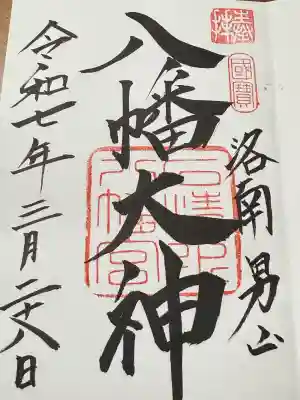 奉拝
國寶
洛南 男山
八幡大神
石清水八幡宮
令和七年三月二十八日